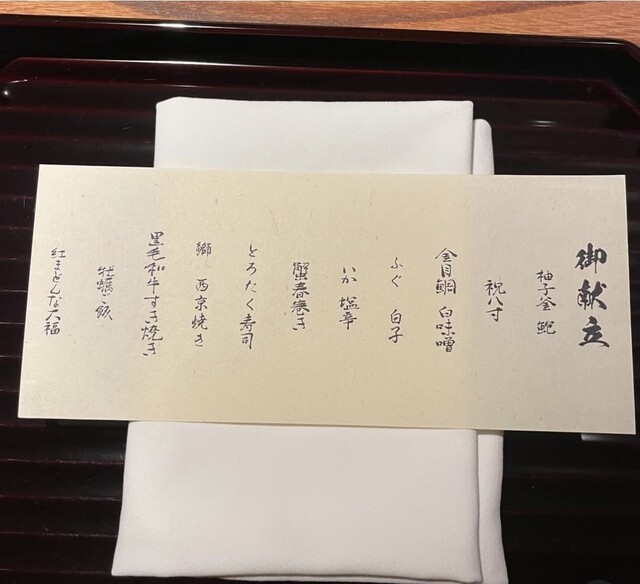 御献立
柚子釜 鮑
祝八寸
金目鯛 白味噌
ふぐ 白子
いか 塩辛
蟹春巻き
とろたく寿司
鰤 西京焼き
黒毛和牛すき焼き
牡蠣ご飯
紅まどんな大福